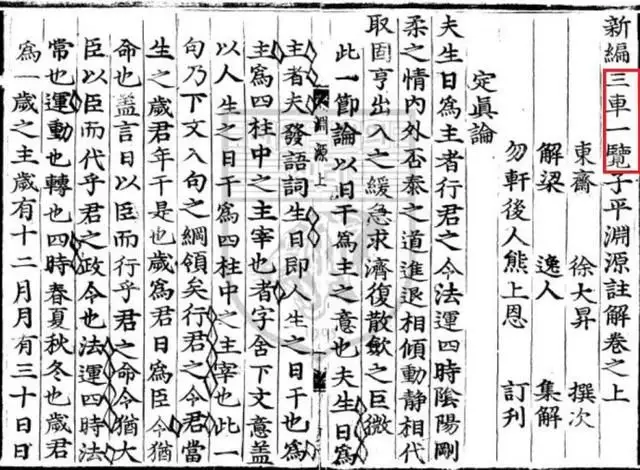 新編三車一覽子平淵源註解卷之上
東齋 徐大昇 撰次
解梁 逸人 集解
勿軒後人熊上恩 訂刊
定眞論
夫生日爲主者行君之令法運四時陰陽剛
柔之情內外否泰之道進退相傾動靜相代
取固亨出入之緩急求濟復散斂之巨微
此一節論以日干爲主之意也夫生日爲
淵源上
主者夫發語詞生日即人生之日干也爲
主爲四柱中之主宰也者字舍下文意蓋
以人生之日干爲四柱中之主宰也此一
句乃下文入句之綱領矣行君之令君當
生之歲君年干是也歲爲君日爲臣令猶
命也盖言日以臣而行乎君之命令猶大
臣以臣而代乎君之政令也法運四時法
常也運動也轉也四時春夏秋冬也歲君
爲一歲之主歲有十二月月有三十日日